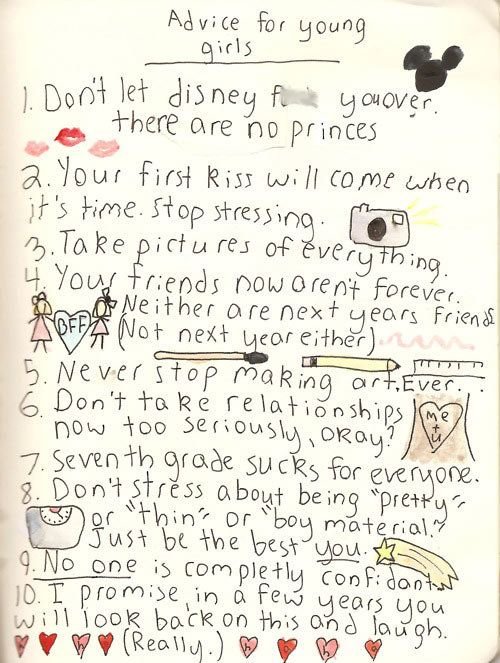 Advice for young
girls
1. Don't let disney f you over.
there are no princes
2. Your first kiss will come when
it's time. Stop stressing.
3. Take pictures of everything.
4. Your friends now arent forever.
Neither are next years friends
(Not next year either).
BFF
5. Never stop making art. Ever.
6. Don't take relationships
now too seriously, okay?
me
+
u
7. Seventh grade sucks for everyone.
8. Don't stress about being "pretty"
or "thin" or "boy material."
Just be the best you.
9. No one is completly confidant.
10. I promise in a few years you
will look back on this and laugh.
(Really.)
h a h a